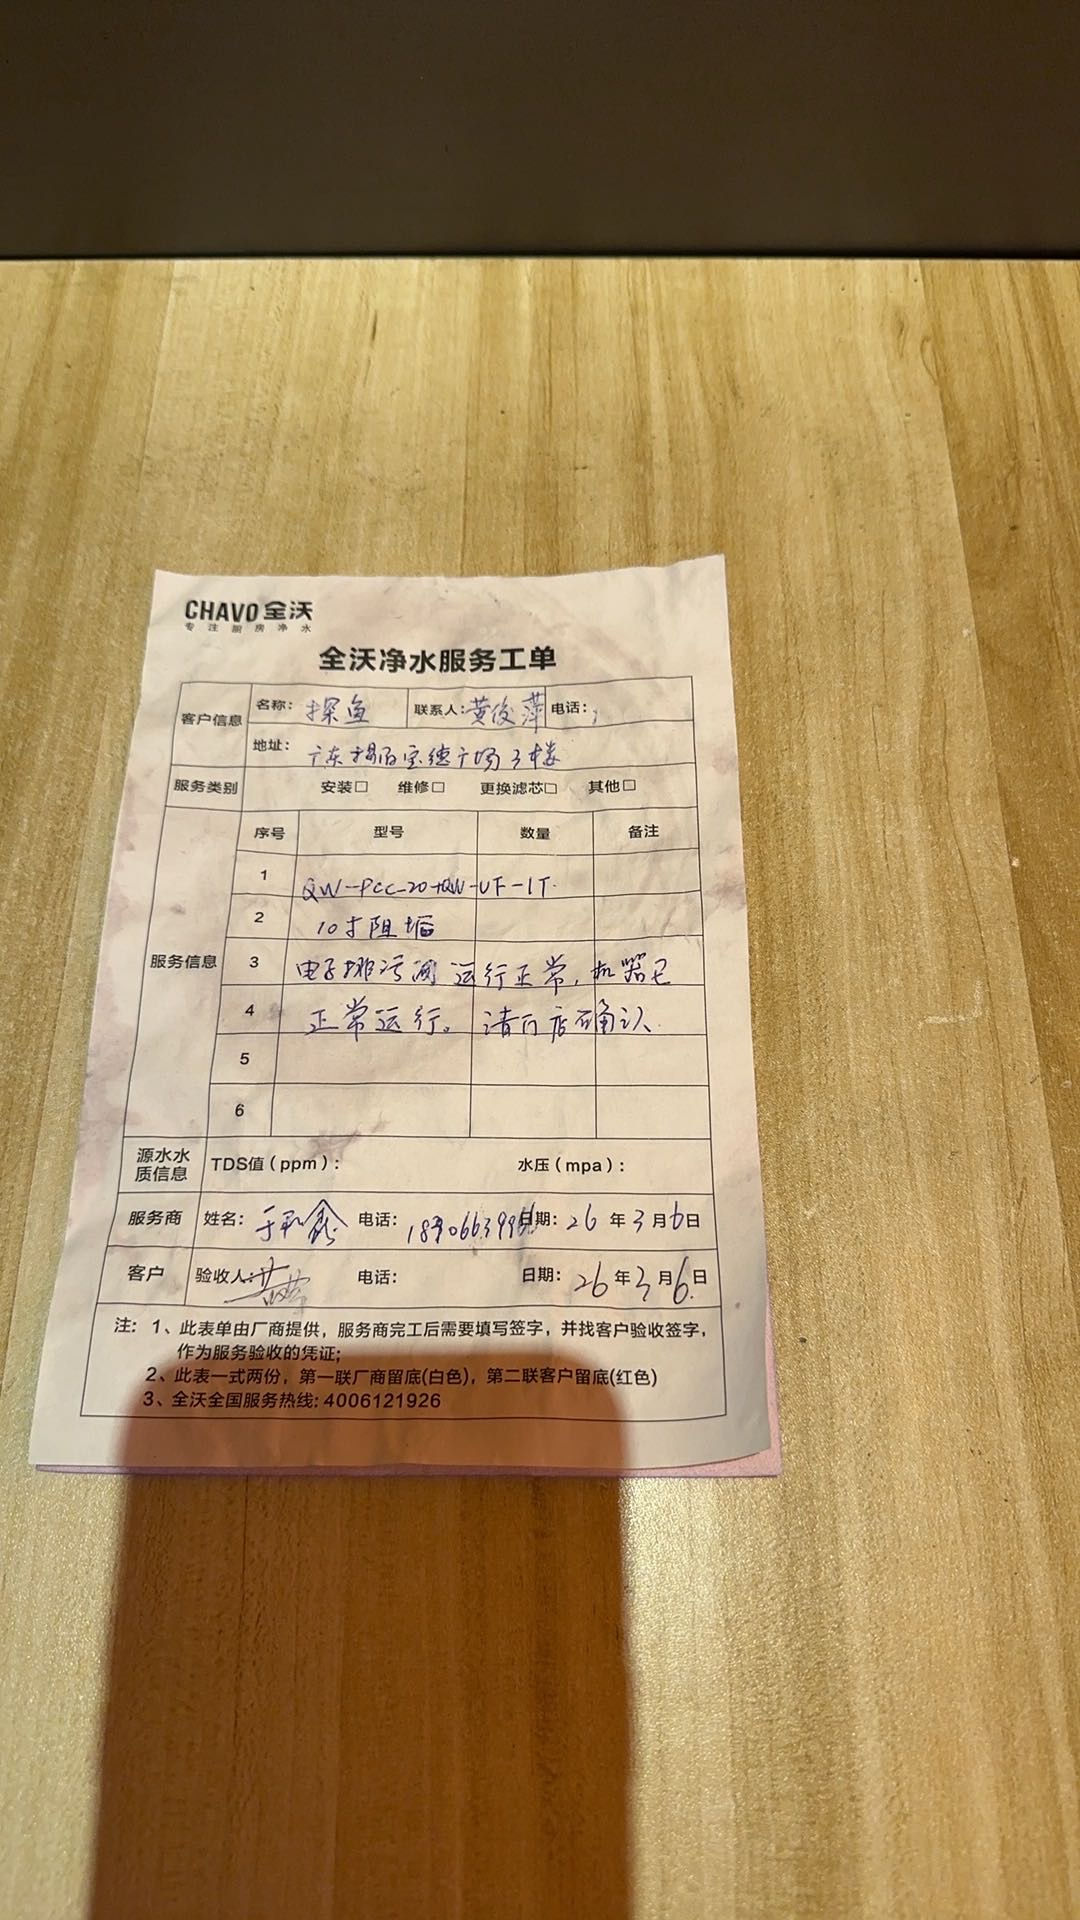 CHAVO 全沃
专注厨房净水
全沃净水服务工单
客户信息 名称: 探鱼 联系人: 黄俊萍 电话:
地址: 广东揭阳宝德广场3楼
服务类别 安装□ 维修□ 更换滤芯□ 其他□
服务信息 序号 型号 数量 备注
1 QW-PCC-20+QW-UF-1T.
2 10寸阻垢
3 电子排污阀运行正常,机器已
4 正常运行。请门店确认.
5
6
源水水质信息 TDS值(ppm): 水压(mpa):
服务商 姓名: 电话: 日期: 26年3月6日
客户 验收人: 电话: 日期: 26年3月6日
注: 1、此表单由厂商提供,服务商完工后需要填写签字,并找客户验收签字,
作为服务验收的凭证;
2、此表一式两份,第一联厂商留底(白色),第二联客户留底(红色)
3、全沃全国服务热线: 4006121926